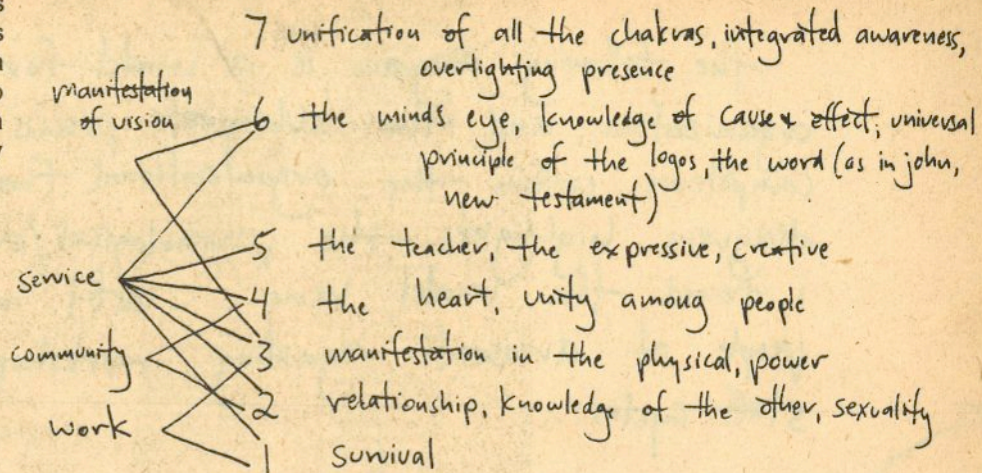 7 unification of all the chakras, integrated awareness,
overlighting presence
manifestation
of vision
6 the minds eye, knowledge of cause & effect, universal
principle of the logos, the word (as in john,
new testament)
5 the teacher, the expressive, creative
service
4 the heart, unity among people
community
3 manifestation in the physical, power
2 relationship, knowledge of the other, sexuality
work
1 survival